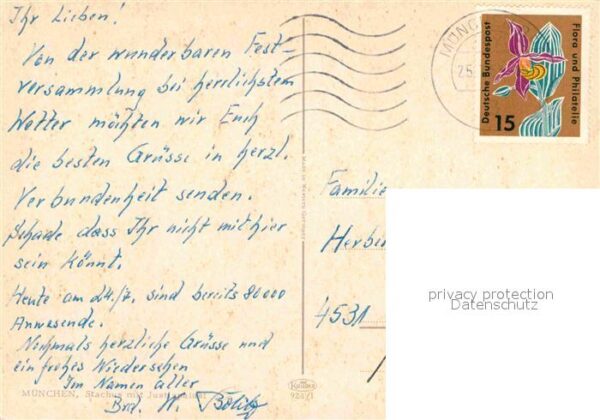 Ihr Lieben!
Von der wunderbaren Fest-
versammlung bei herrlichstem
Wetter möchten wir Euch
die besten Grüsse in herzl.
Verbundenheit senden.
Schade dass Ihr nicht mit hier
sein könnt.
Heute am 24./7. sind bereits 80000
Anwesende.
Nochmals herzliche Grüsse und
ein frohes Wiedersehen
Im Namen aller
Brd. W.
MÜNCHEN, Stachus mit Justizpalast
Made in Western Germany
Krüger
924/1
MÜNC
25.
Deutsche Bundespost
15
Flora und Philatelie
Familie
Herb
4531
privacy protection
Datenschutz